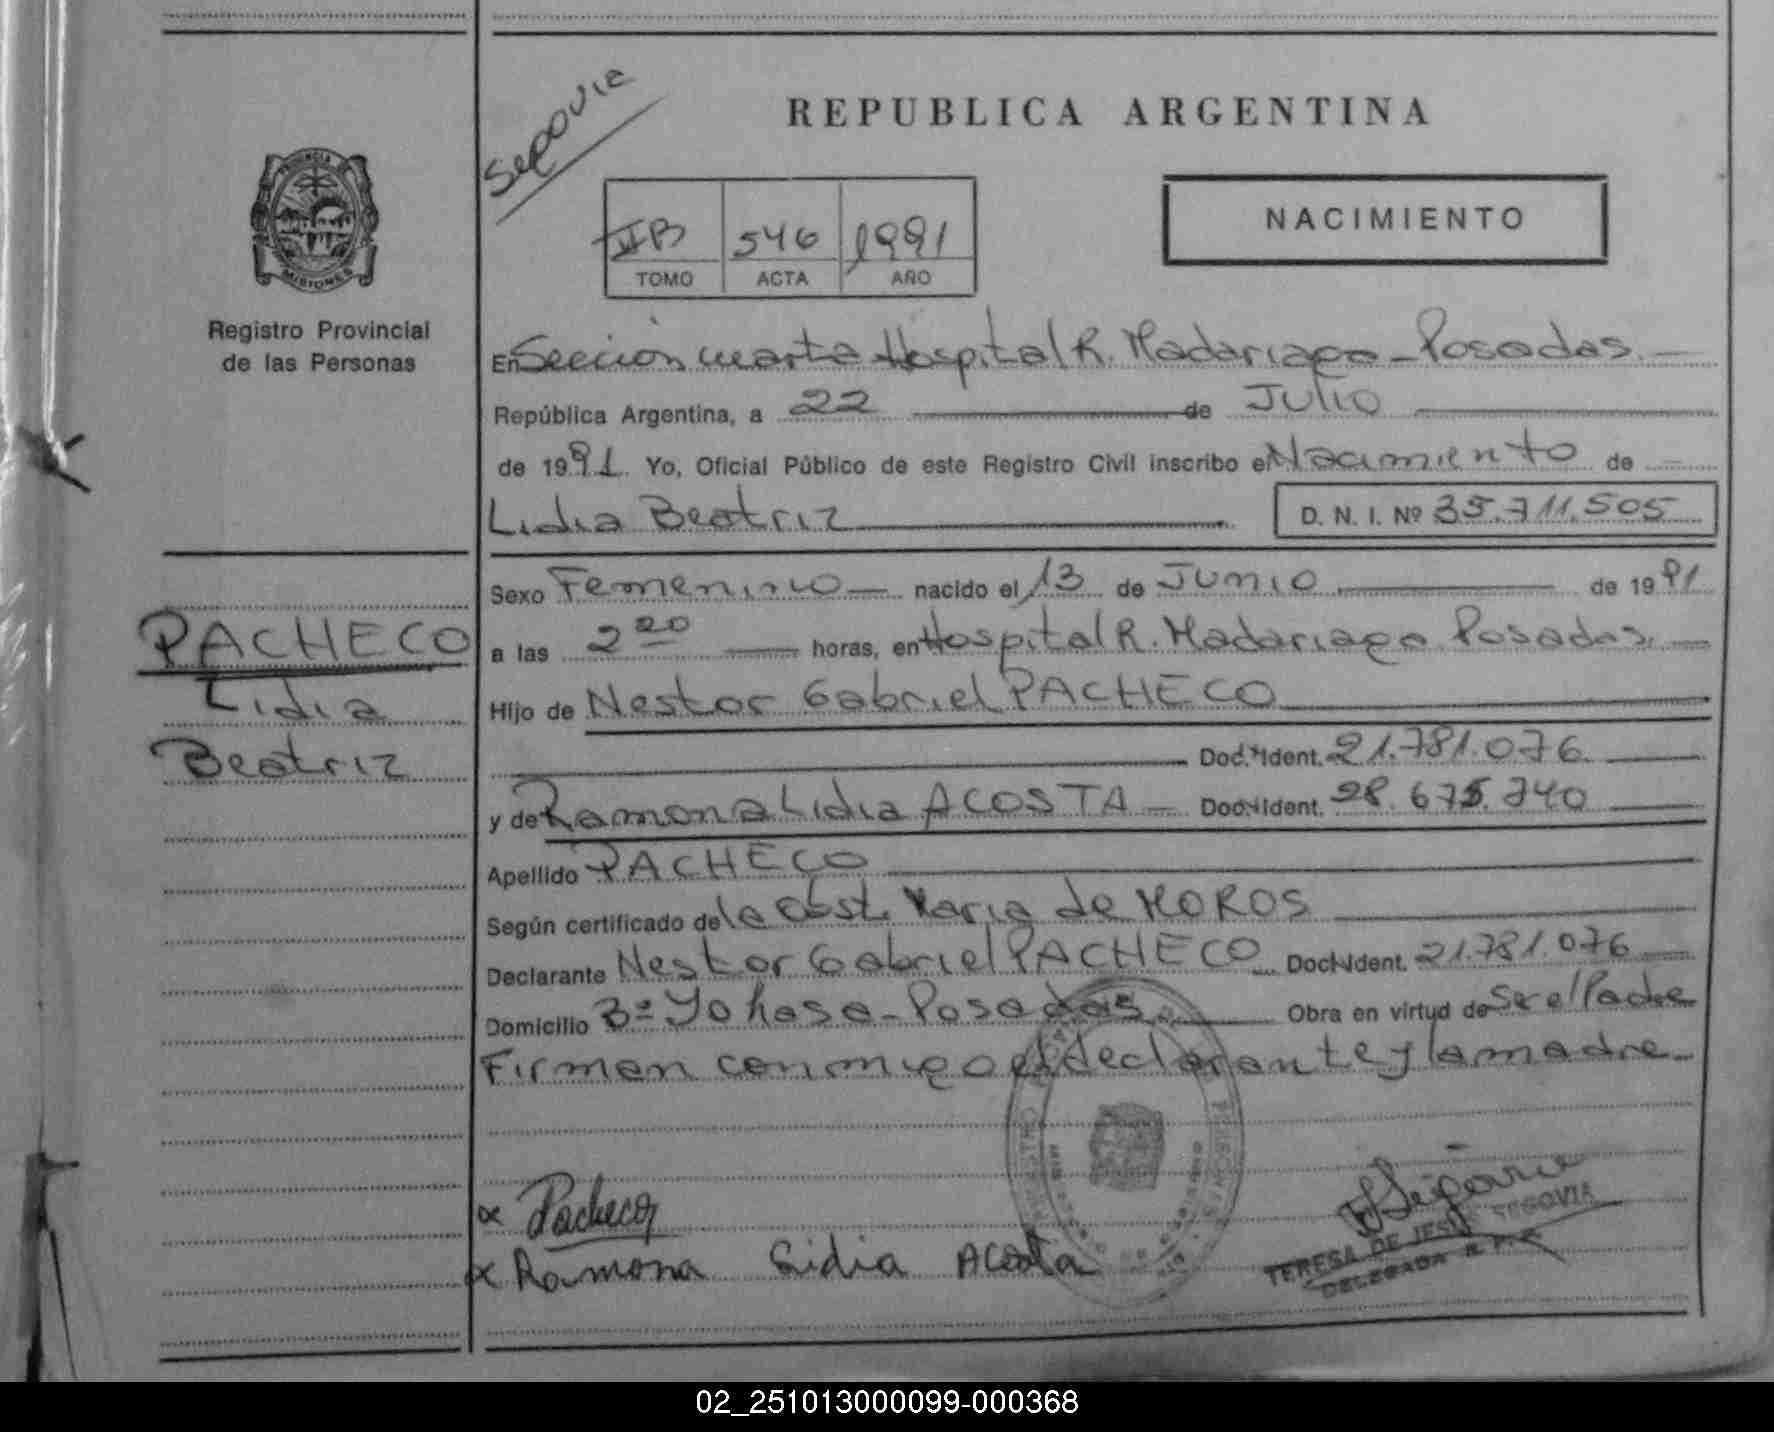 Segovia
REPUBLICA ARGENTINA
NACIMIENTO
II B 546 1991
TOMO ACTA AÑO
PROVINCIA
MISIONES
Registro Provincial
de las Personas
En Sección cuarta Hospital R. Madariaga - Posadas.
República Argentina, a 22 de Julio
de 1991 Yo, Oficial Público de este Registro Civil inscribo el Nacimiento de
Lidia Beatriz D. N. I. Nº 35.711.505
Sexo Femenino nacido el 13 de Junio de 1991
a las 2 20 horas, en Hospital R. Madariaga Posadas.
Hijo de Nestor Gabriel PACHECO
Doc. Ident. 21.781.076
y de Ramona Lidia ACOSTA Doc. Ident. 28.675.740
Apellido PACHECO
Según certificado de la Obst. Maria de MOROS
Declarante Nestor Gabriel PACHECO Doc. Ident. 21.781.076
Domicilio Bº Yohasa - Posadas Obra en virtud de Ser el Padre
Firman conmigo el declarante y la madre
PACHECO
Lidia
Beatriz
Pacheco
Ramona Lidia Acosta
TERESA DE JESUS SEGOVIA
DELEGADA R. P. P.
02_251013000099-000368